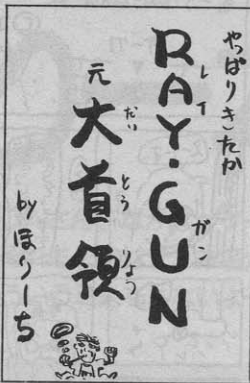 やっぱりきたか
RAY・GUN
レイ ガン
元 大首領
だいとうりょう
by ほりーち